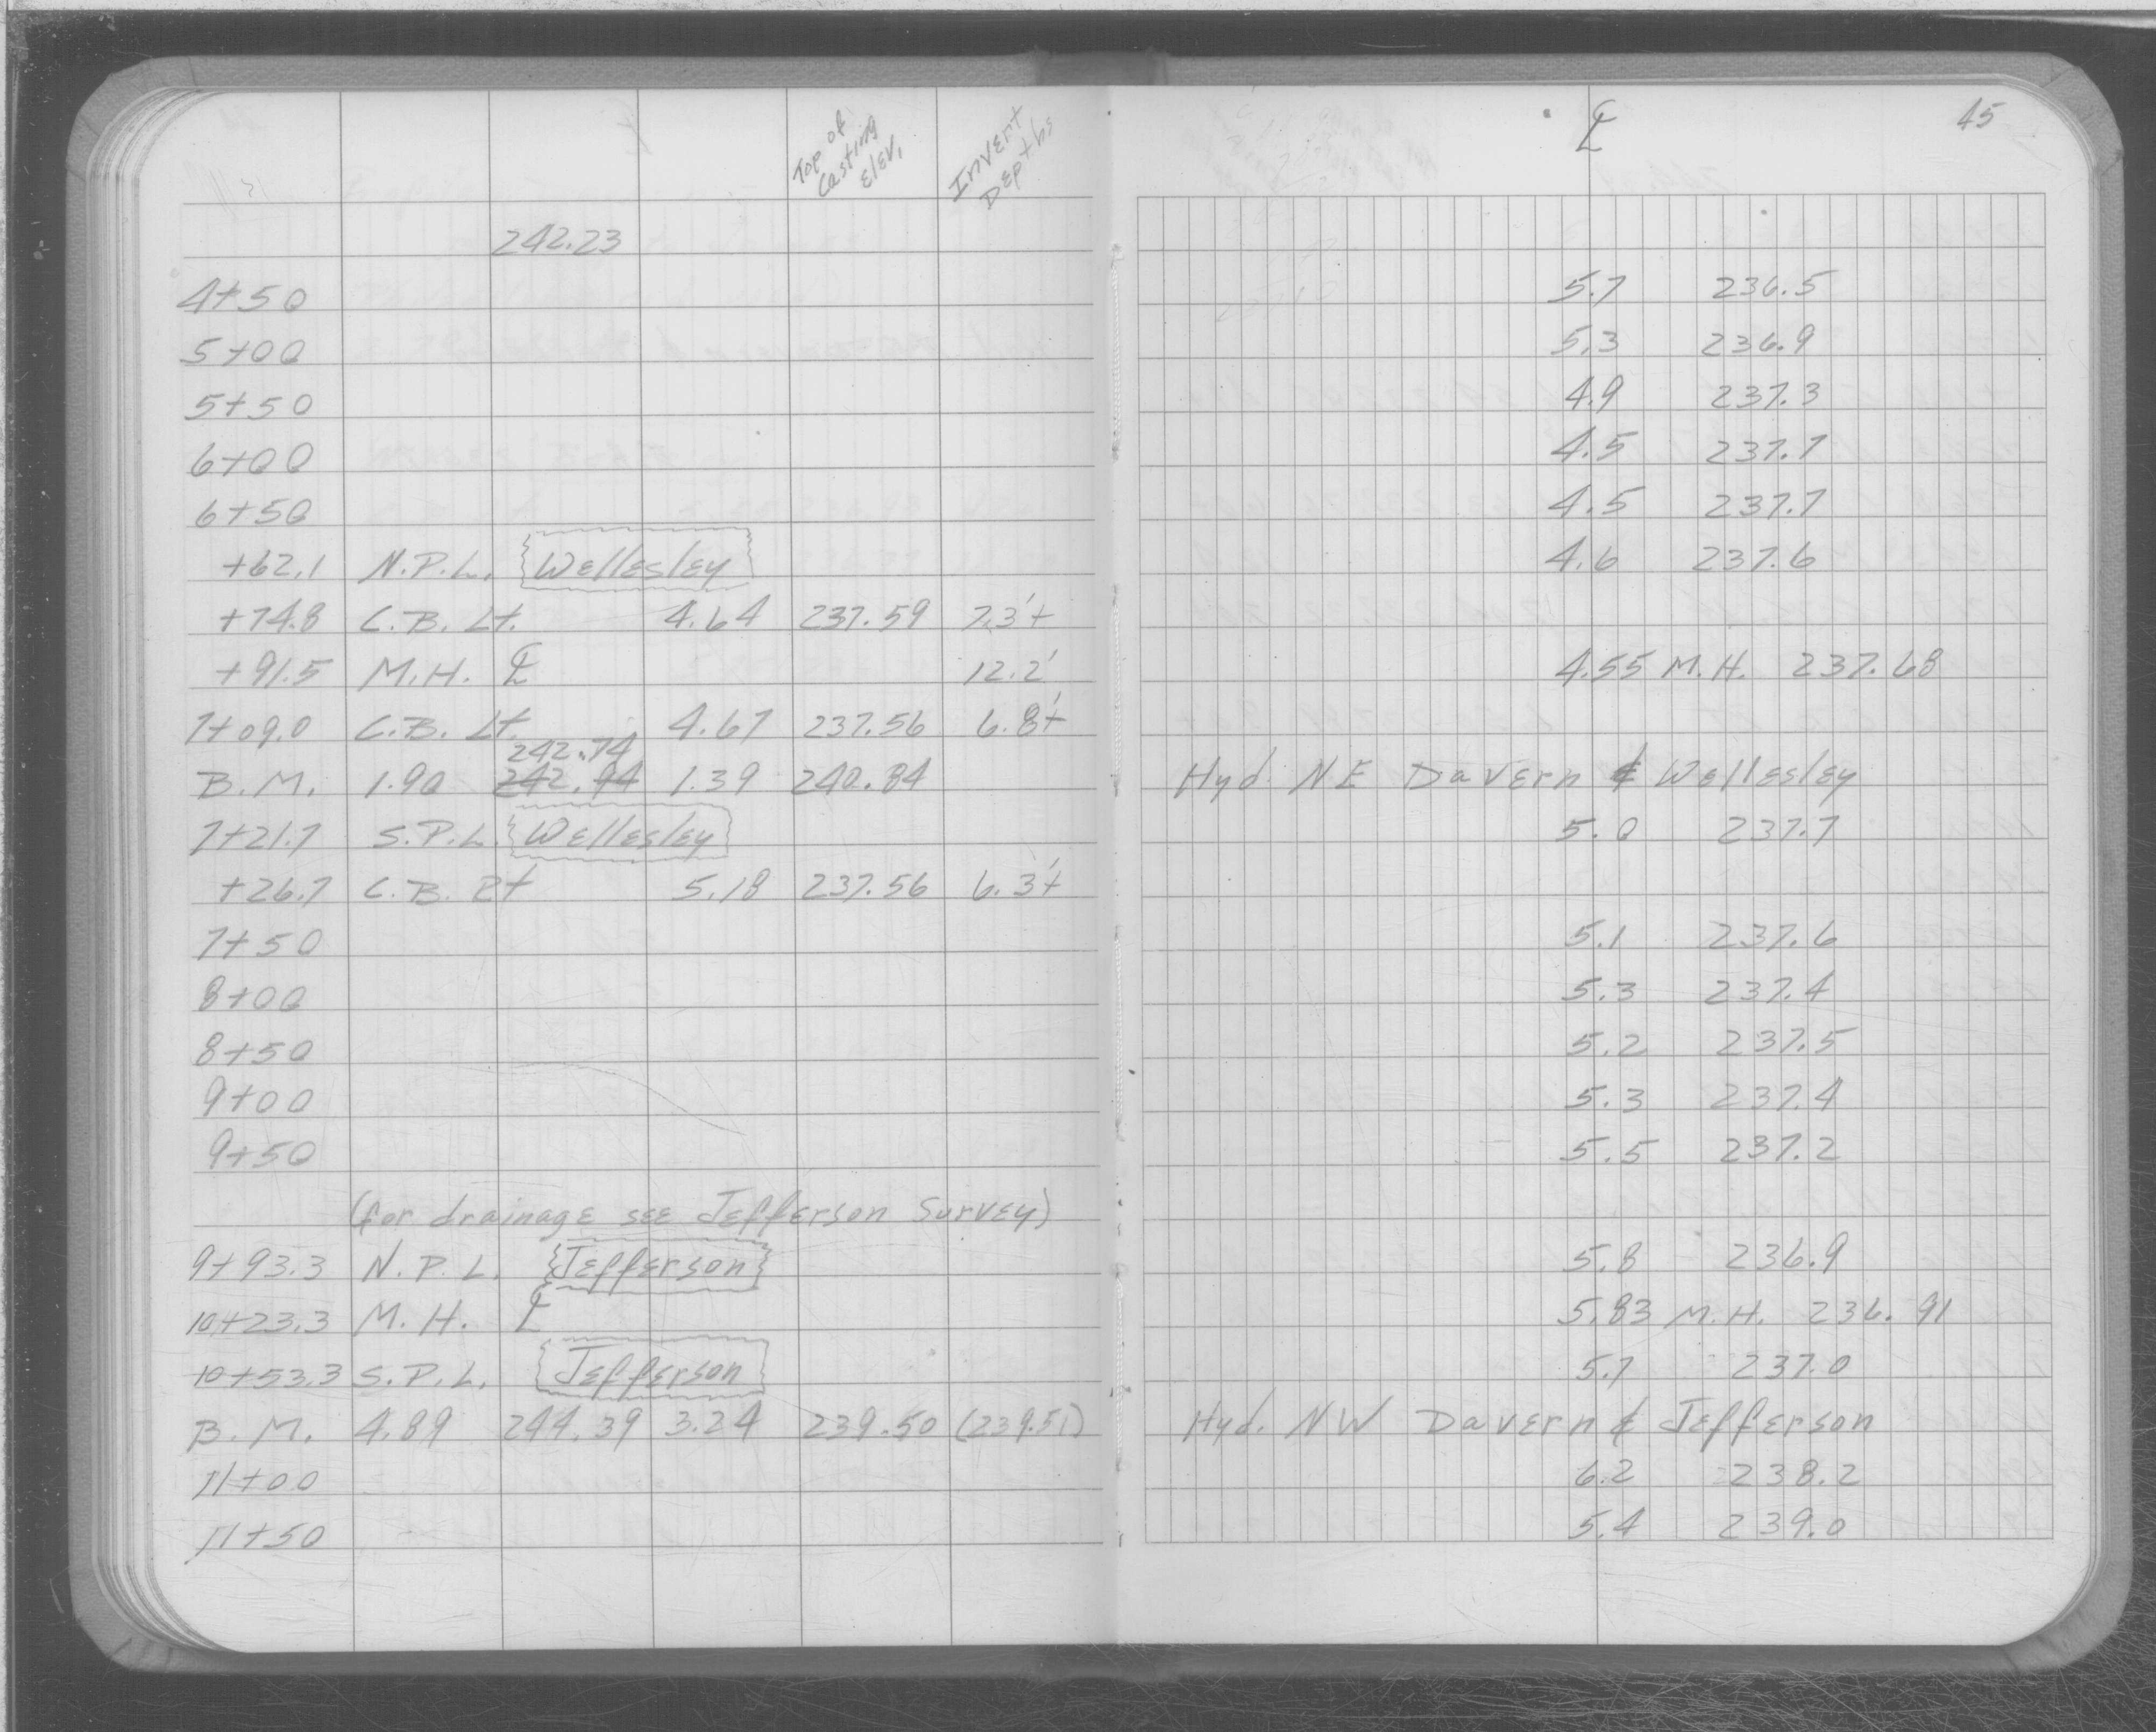 Top of Casting Elev. Invert Depths ℄ 45
242.23
4+50 5.7 236.5
5+00 5.3 236.9
5+50 4.9 237.3
6+00 4.5 237.7
6+50 4.5 237.7
+62.1 N.P.L. Wellesley 4.6 237.6
+74.8 C.B. Lt. 4.64 237.59 7.3'±
+91.5 M.H. ℄ 12.2' 4.55 M.H. 237.68
7+09.0 C.B. Lt. 4.67 237.56 6.8'±
242.74
B.M. 1.90 242.94 1.39 240.84 Hyd. NE Davern & Wellesley
7+21.7 S.P.L. Wellesley 5.0 237.7
+26.7 C.B. Rt 5.18 237.56 6.3'±
7+50 5.1 237.6
8+00 5.3 237.4
8+50 5.2 237.5
9+00 5.3 237.4
9+50 5.5 237.2
(for drainage see Jefferson Survey)
9+93.3 N.P.L. Jefferson 5.8 236.9
10+23.3 M.H. ℄ 5.83 M.H. 236.91
10+53.3 S.P.L. Jefferson 5.7 237.0
B.M. 4.89 244.39 3.24 239.50 (239.51) Hyd. NW Davern & Jefferson
11+00 6.2 238.2
11+50 5.4 239.0